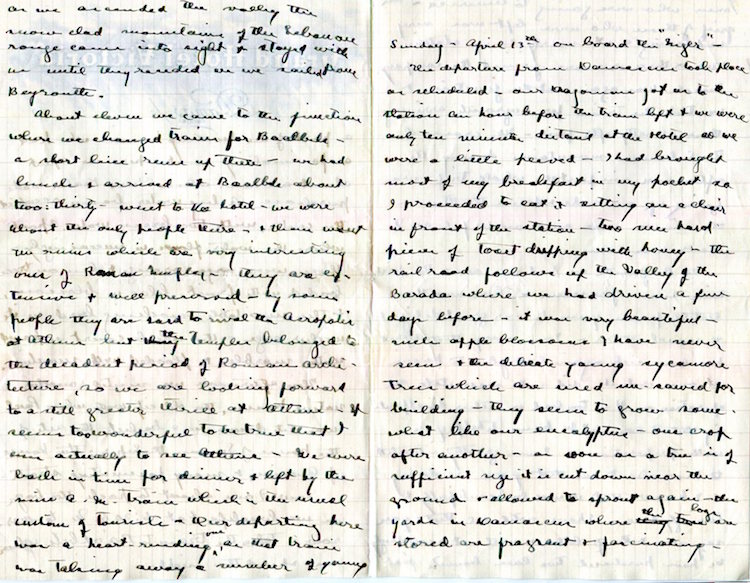 Sunday - April 13th on board the "Niger" -
The departure from Damascus took place
as scheduled - our dragoman got us to the
station an hour before the train left & we were
only ten minutes distant at the Hotel so we
were a little peeved - I had brought
most of my breakfast in my pocket so
I proceeded to eat it sitting on a chair
in front of the station - two nice hard
pieces of toast dripping with honey - the
rail road follows up the Valley of the
Barada where we had driven a few
days before - it was very beautiful -
such apple blossoms I have never
seen & the delicate young sycamore
trees which are used un-sawed for
building - they seem to grow some-
what like our eucalyptus - one crop
after another - as soon as a tree is of
sufficient size it is cut down near the
ground & allowed to sprout again - the
yards in Damascus where the logs are
stored are fragrant & fascinating -
as we ascended the valley the
snow clad mountains of the Lebanon
range came into sight & stayed with
us until they receded as we sailed from
Beyrouth.
About eleven we came to the junction
where we changed trains for Baalbek -
a short line runs up there - we had
lunch & arrived at Baalbek about
two:thirty - went to the hotel - we were
about the only people there - & then went
the ruins which are very interesting
ones of Roman temples - they are ex-
tensive & well preserved - by some
people they are said to rival the Acropolis
at Athens but these temples belonged to
the decadent period of Roman archi-
tecture, so we are looking forward
to a still greater thrill at Athens - It
seems too wonderful to be true that I
am actually to see Athens - We were
back in time for dinner & left by the
nine a.m. train which is the usual
custom of tourists - Our departing here
was a heart rending one, as that train
was taking away a number of young